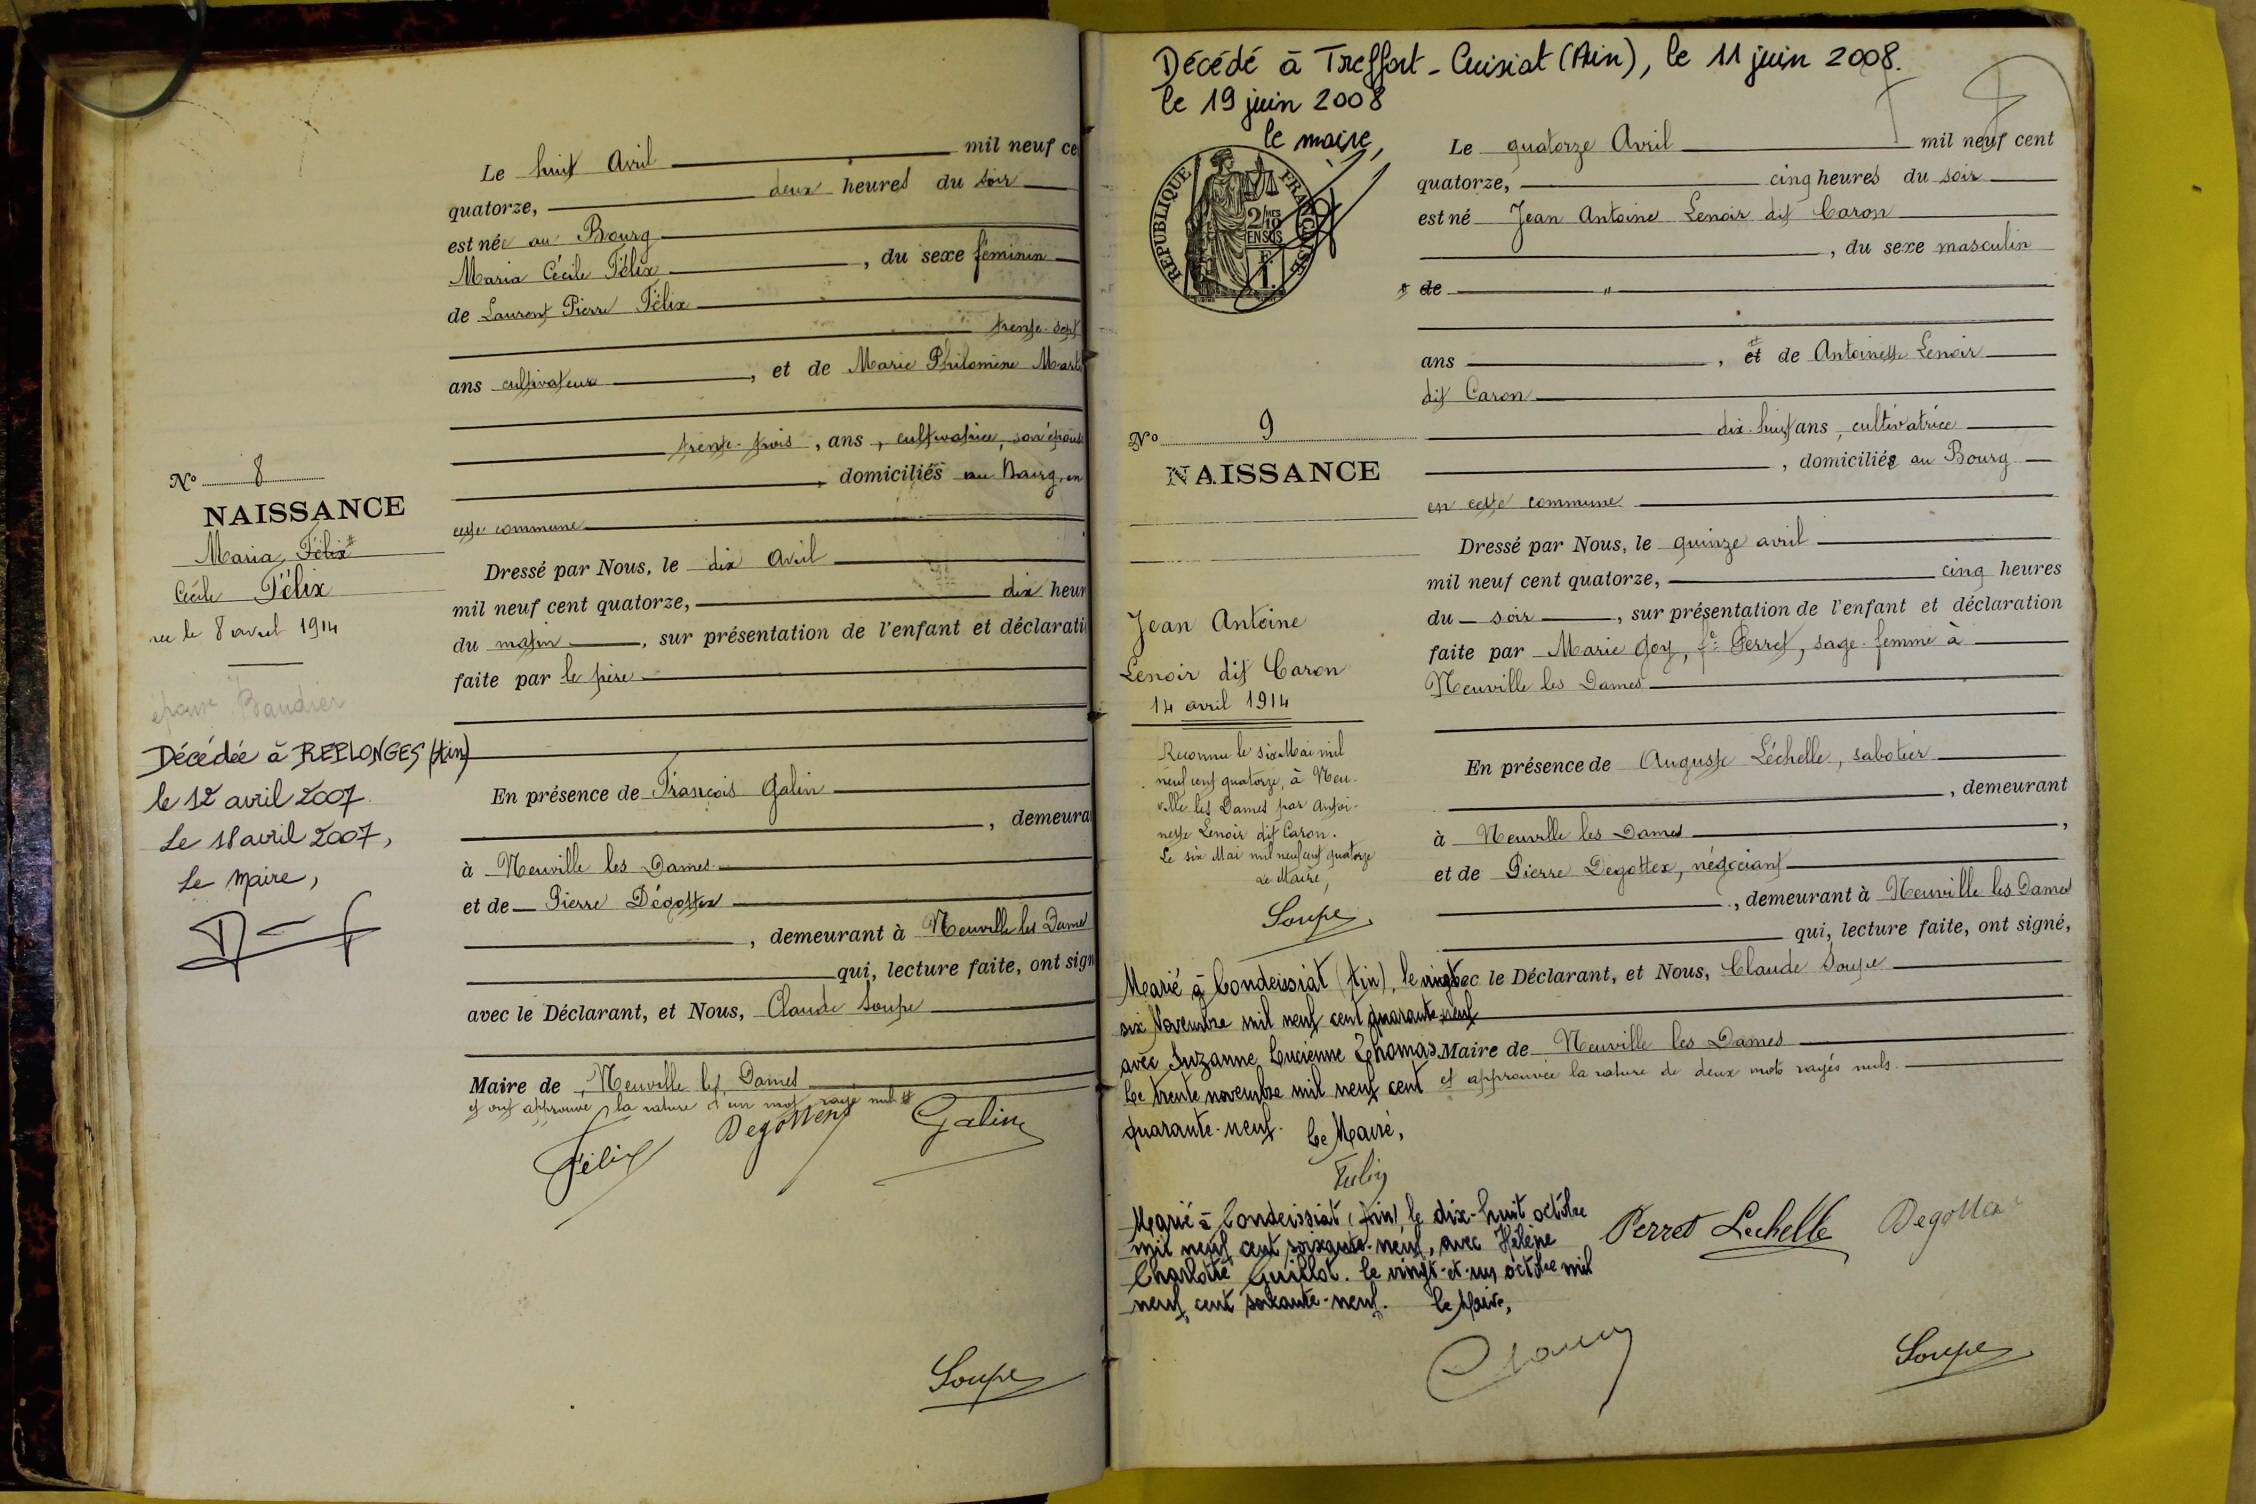 Le huit Avril mil neuf ce
quatorze, deux heures du soir
est née au Bourg
Maria Cécile Félix , du sexe féminin
de Laurent Pierre Félix
trente-sept
ans cultivateur , et de Marie Philomène Mart
trente-trois , ans , cultivatrice, son épouse
, domiciliés au Bourg, en
cette commune
Dressé par Nous, le dix Avril
mil neuf cent quatorze, dix heur
du matin , sur présentation de l'enfant et déclarati
faite par le père
En présence de François Galin
, demeura
à Neuville les Dames
et de Pierre Dégottex
, demeurant à Neuville les Dames
qui, lecture faite, ont sign
avec le Déclarant, et Nous, Claude Soupe
Maire de Neuville les Dames
et ont approuvé la rature d'un mot rayé nul #
Félix Degottex Galin
Soupe
No 8
NAISSANCE
Maria Félix #
Cécile Félix
née le 8 avril 1914
épouse Baudier
Décédée à REPLONGES (Ain)
le 12 avril 2007.
Le 18 avril 2007,
Le Maire,
Décédé à Treffort-Cuisiat (Ain), le 11 juin 2008.
le 19 juin 2008
le maire,
REPUBLIQUE FRANCAISE
2/MES
10
EN SUS
1F.
No 9
NAISSANCE
Jean Antoine
Lenoir dit Caron
14 avril 1914
Reconnu le six Mai mil
neuf cent quatorze, à Neu-
ville les Dames par Antoi-
nette Lenoir dit Caron.
Le six Mai mil neuf cent quatorze
Le Maire,
Soupe
Marié à Condeissiat (Ain), le vingt
six Novembre mil neuf cent quarante neuf
avec Suzanne Lucienne Thomas.
Le trente novembre mil neuf cent
quarante-neuf. Le Maire,
Marié à Condeissiat (Ain) le dix-huit octobre
mil neuf cent soixante-neuf, avec Hélène
Charlotte Guillot. le vingt-et-un octobre mil
neuf cent soixante-neuf. Le Maire,
Le quatorze Avril mil neuf cent
quatorze, cinq heures du soir
est né Jean Antoine Lenoir dit Caron
, du sexe masculin
# de "
ans , # et de Antoinette Lenoir
dit Caron
dix-huit ans, cultivatrice
, domiciliée au Bourg
en cette commune
Dressé par Nous, le quinze avril
mil neuf cent quatorze, cinq heures
du soir , sur présentation de l'enfant et déclaration
faite par Marie Goy, fe Perret, sage-femme à
Neuville les Dames
En présence de Auguste Léchelle, sabotier
, demeurant
à Neuville les Dames ,
et de Pierre Degottex, négociant
, demeurant à Neuville les Dames
qui, lecture faite, ont signé,
avec le Déclarant, et Nous, Claude Soupe
Maire de Neuville les Dames
et approuvée la rature de deux mots rayés nuls.
Perret Lechelle Degottex
Soupe